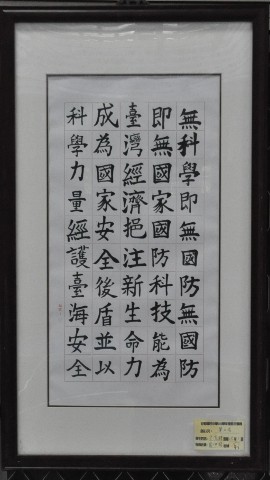 無科學即無國防無國防
即無國家國防科技能為
臺灣經濟挹注新生命力
成為國家安全後盾並以
科學力量經護臺海安全